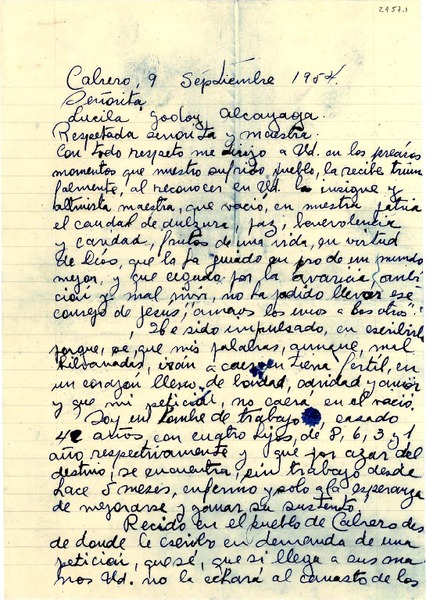 2457.1
Cabrero, 9 Septiembre 1954.
Señorita
Lucila Godoy Alcayaga.
Respetada señorita y maestra.
Con todo respeto me dirijo a Ud. en los precisos
momentos que nuestro sufrido pueblo, la recibe triun
falmente, al reconocer en Ud. la insigne y
altruista maestra, que vació, en nuestra patria
el caudal de dulzura, paz, benevolencia
y caridad, frutos de una vida, en virtud
de Dios, que la ha guiado en pro de un mundo
mejor, y que cegado por la avaricia,
y mal vivir, no ha podido llevar ese
consejo de Jesus, "amaos los unos a los otros".
He sido impulsado, en escribirle
porque, sé, que mis palabras, aunque, mal
hilvanadas, irán a caer en tierra fértil, en
un corazón lleno de bondad, caridad y amor
y que mi petición, no caerá en el vacío.
Soy un hombre de trabajo, casado
42 años, con cuatro hijos, de 8, 6, 3 y 1
año respectivamente y que por azar del
destino, se encuentra, sin trabajo desde
hace 5 meses, enfermo y solo a la esperanza
de mejorarse y ganar su sustento.
Recido en el pueblo de Cabrero des
de donde le escribo en demanda de una
petición, que sé, que si llega a sus ma
nos Ud. no la echará al canasto de los